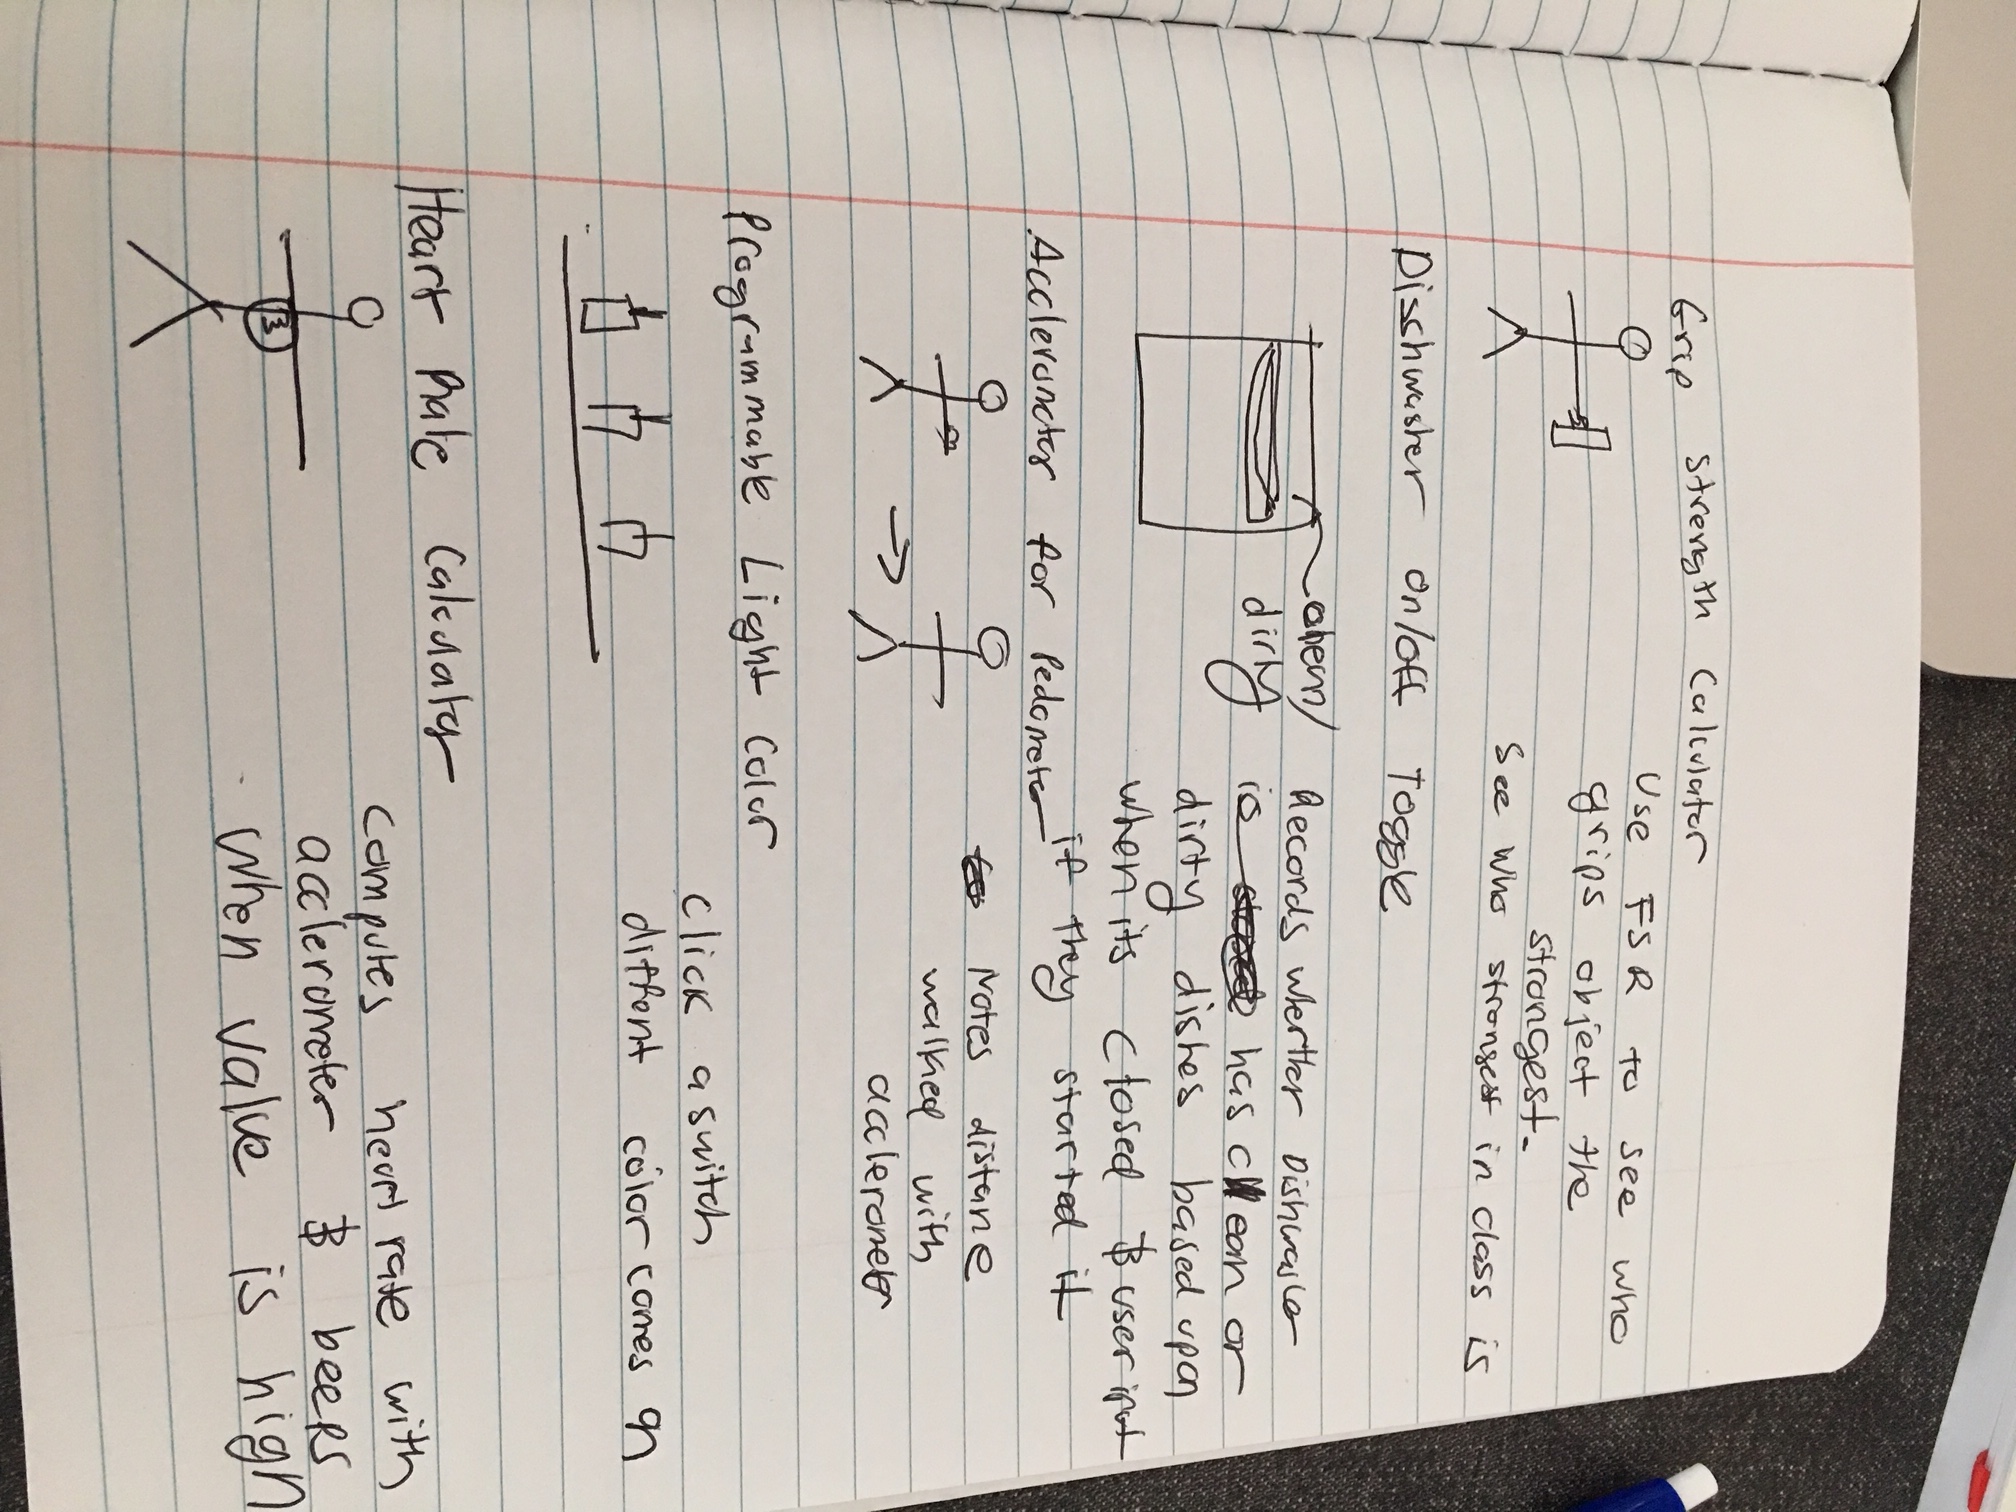 Grip strength Calculator
Use FSR to see who
grips object the
strongest.
See who strongest in class is
Disshwasher on/off Toggle
dirty
Records wherther Dishwasher
is has clean or
dirty dishes based upon
when its closed & user input
if they started it
Acclerometer for Pedometer
Notes distane
walked with
acclerometer
Programmable Light Color
Click a switch
diffent color comes on
Heart Rate Calculator
Computes heart rate with
acclerometer & beeps
when value is high